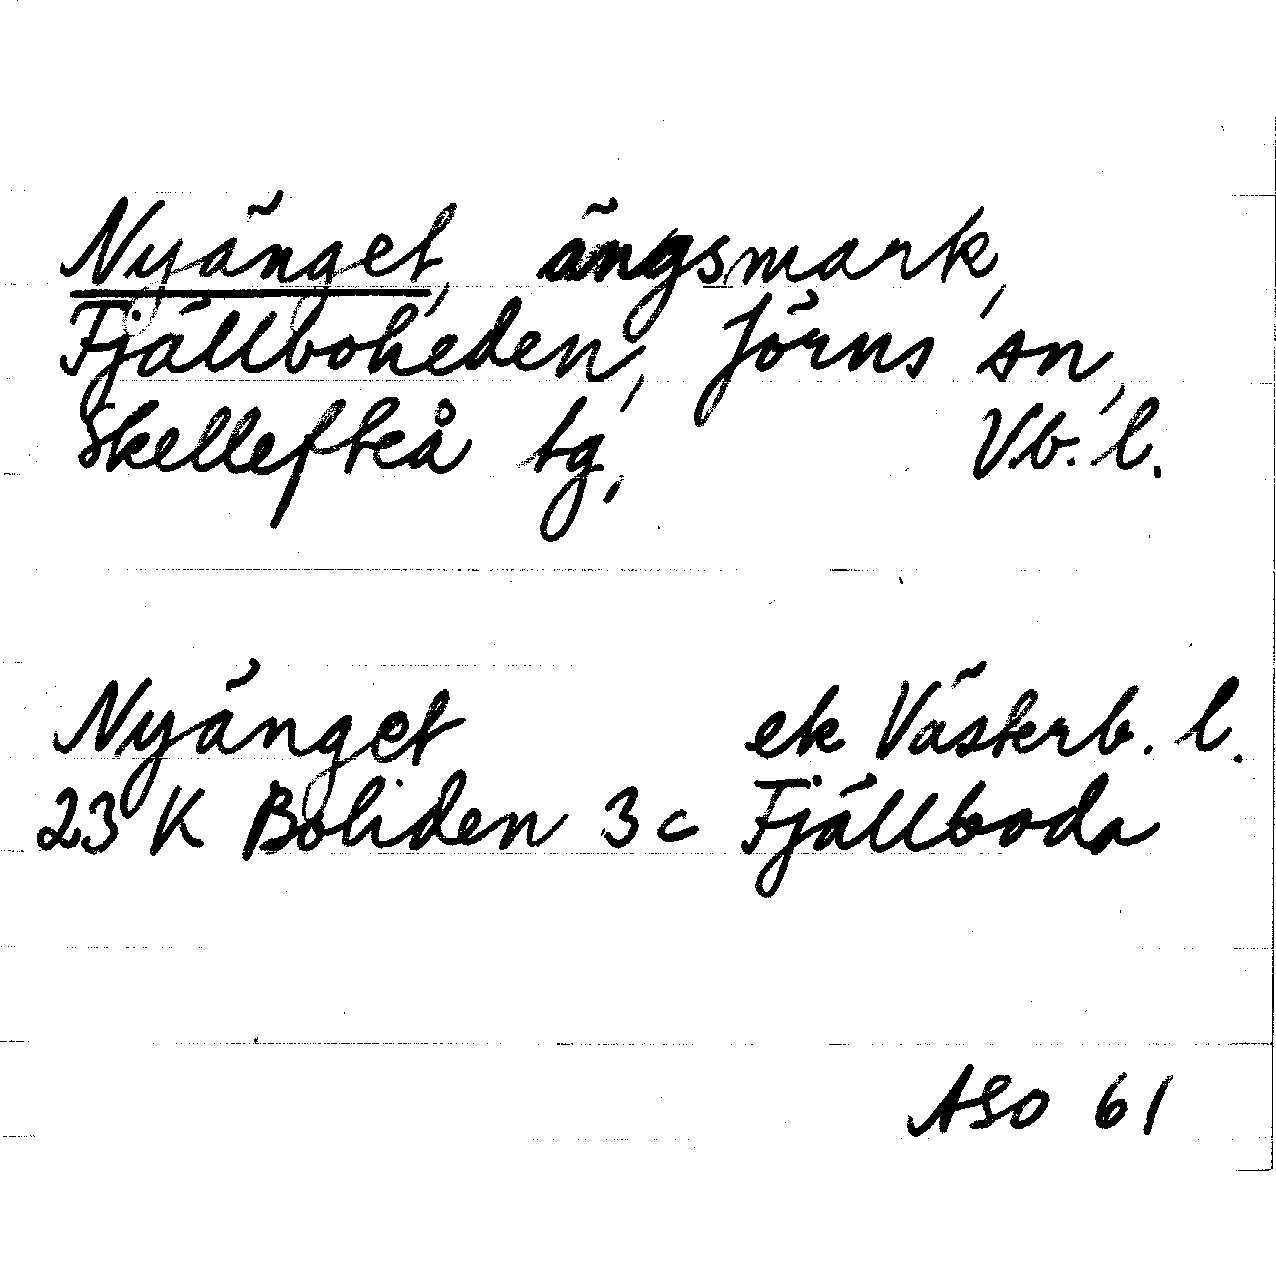 Nyänget, ängsmark,
Fjällboheden, Jörns sn,
Skellefteå tg, Vb. l.
Nyänget ek Västerb. l.
23 K Boliden 3c Fjällboda
ASO 61